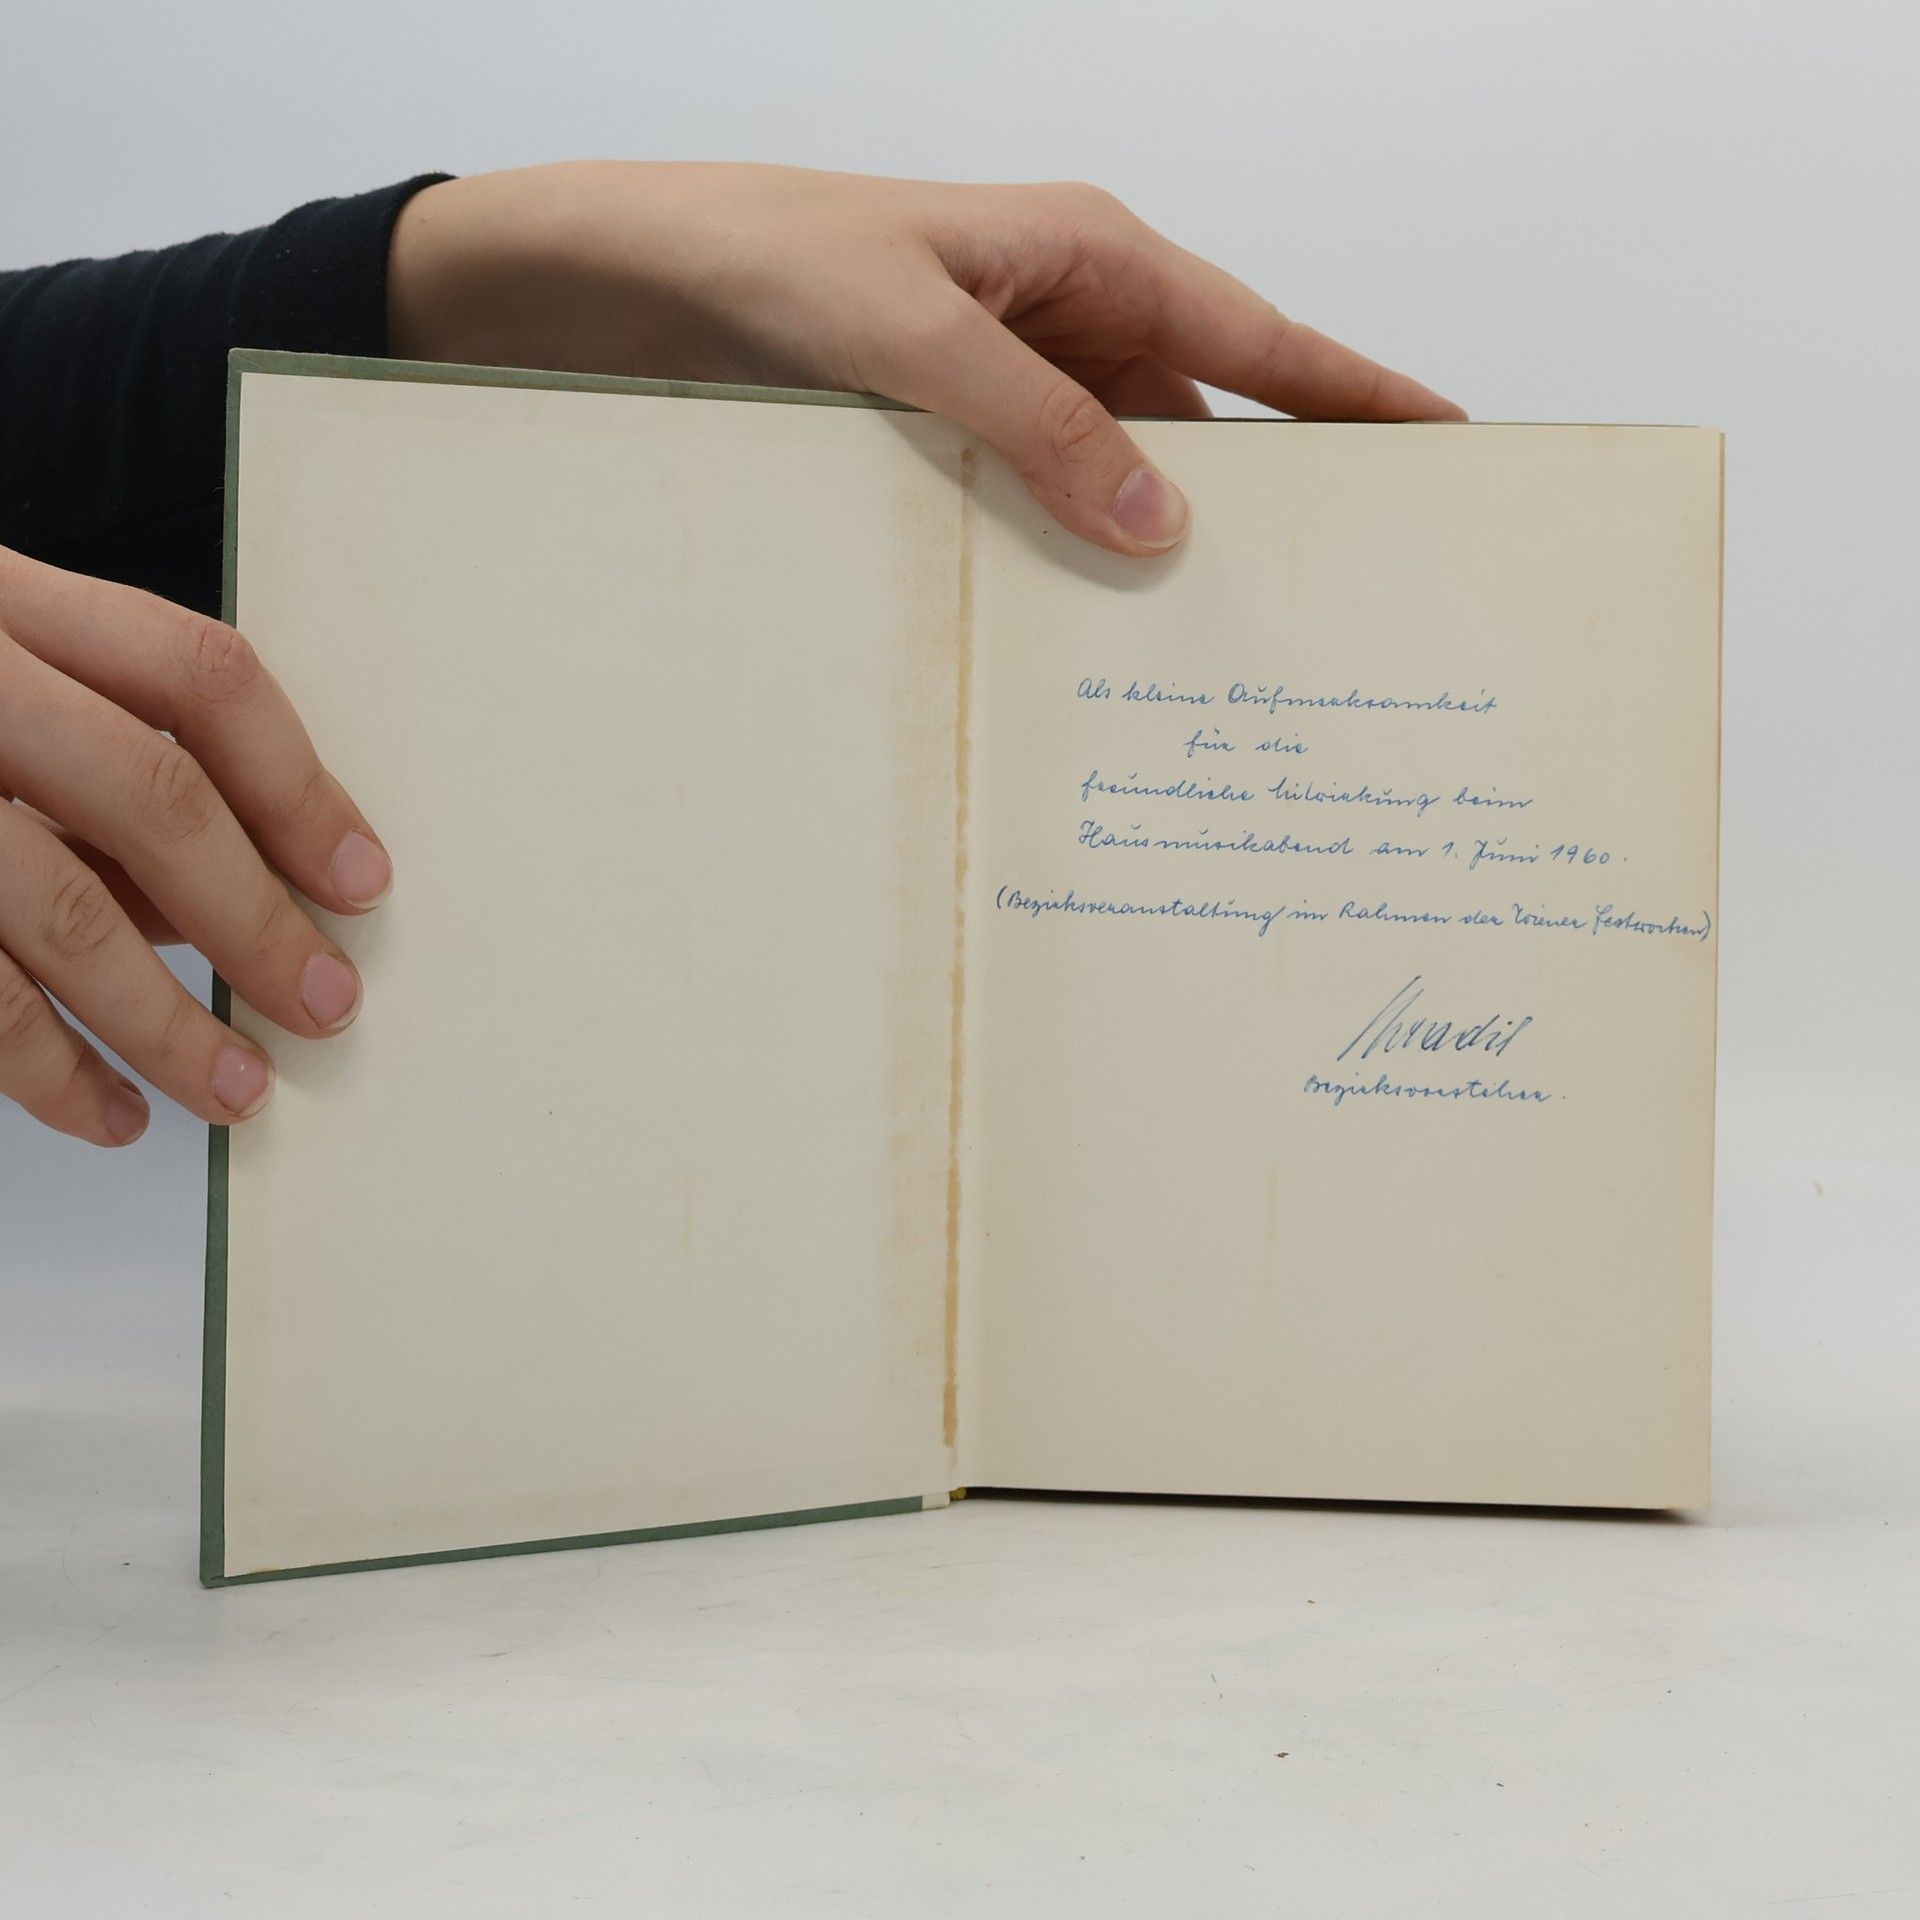 Als kleine Aufmerksamkeit
für die
freundliche Mitwirkung beim
Hausmusikabend am 1. Juni 1960.
(Bezirksveranstaltung im Rahmen der Wiener Festwochen)
Bezirksvorsteher.